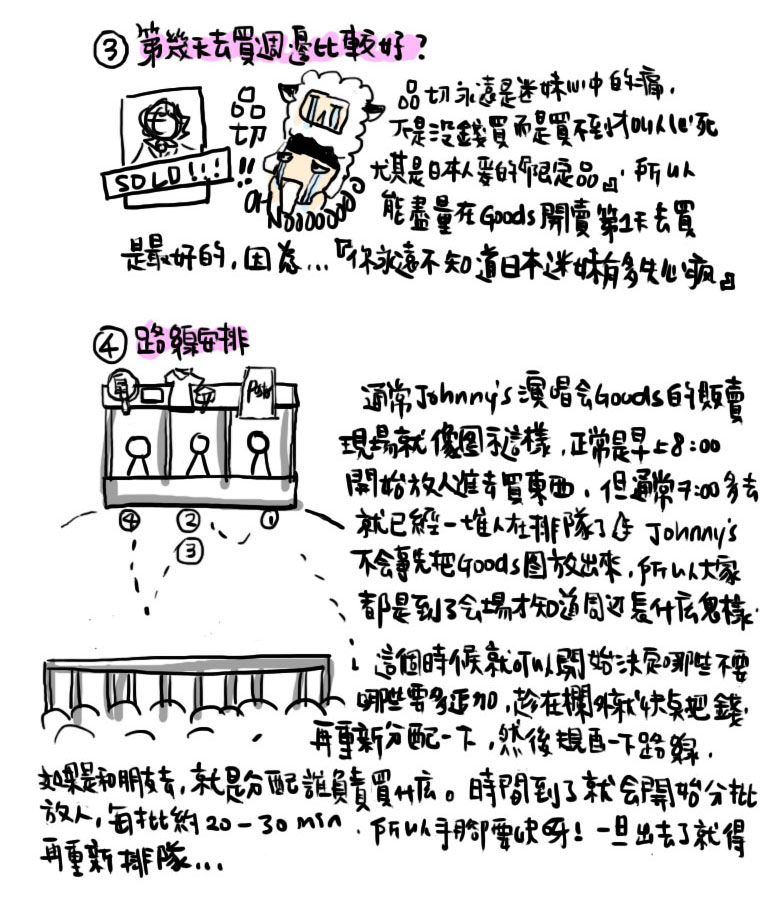 ③ 第幾天去買週邊比較好？
品切永遠是迷妹心中的痛，
不是沒錢買而是買不到才叫人心死
尤其是日本人愛的『限定品』，所以
能盡量在Goods開賣第1天去買
是最好的，因為...『你永遠不知道日本迷妹有多失心瘋』
品切!!
SOLD!!!
OH NOOOOOOO
④ 路線安排
Poster
④ ② ①
③
通常Johnny's演唱会Goods的販賣
現場就像圖示這樣，正常是早上8:00
開始放人進去買東西，但通常7:00多去
就已經一堆人在排隊了 Johnny's
不会事先把Goods图放出來，所以大家
都是到了会場才知道周边長什么鬼樣.
這個時候就可以開始決定哪些不要
哪些要多追加，趁在欄外就快点把錢
再重新分配一下，然後規画一下路線.
如果是和朋友去，就是分配誰負責買什么。時間到了就会開始分批
放人，每批約20-30min，所以手腳要快呀！一旦出去了就得
再重新排隊...